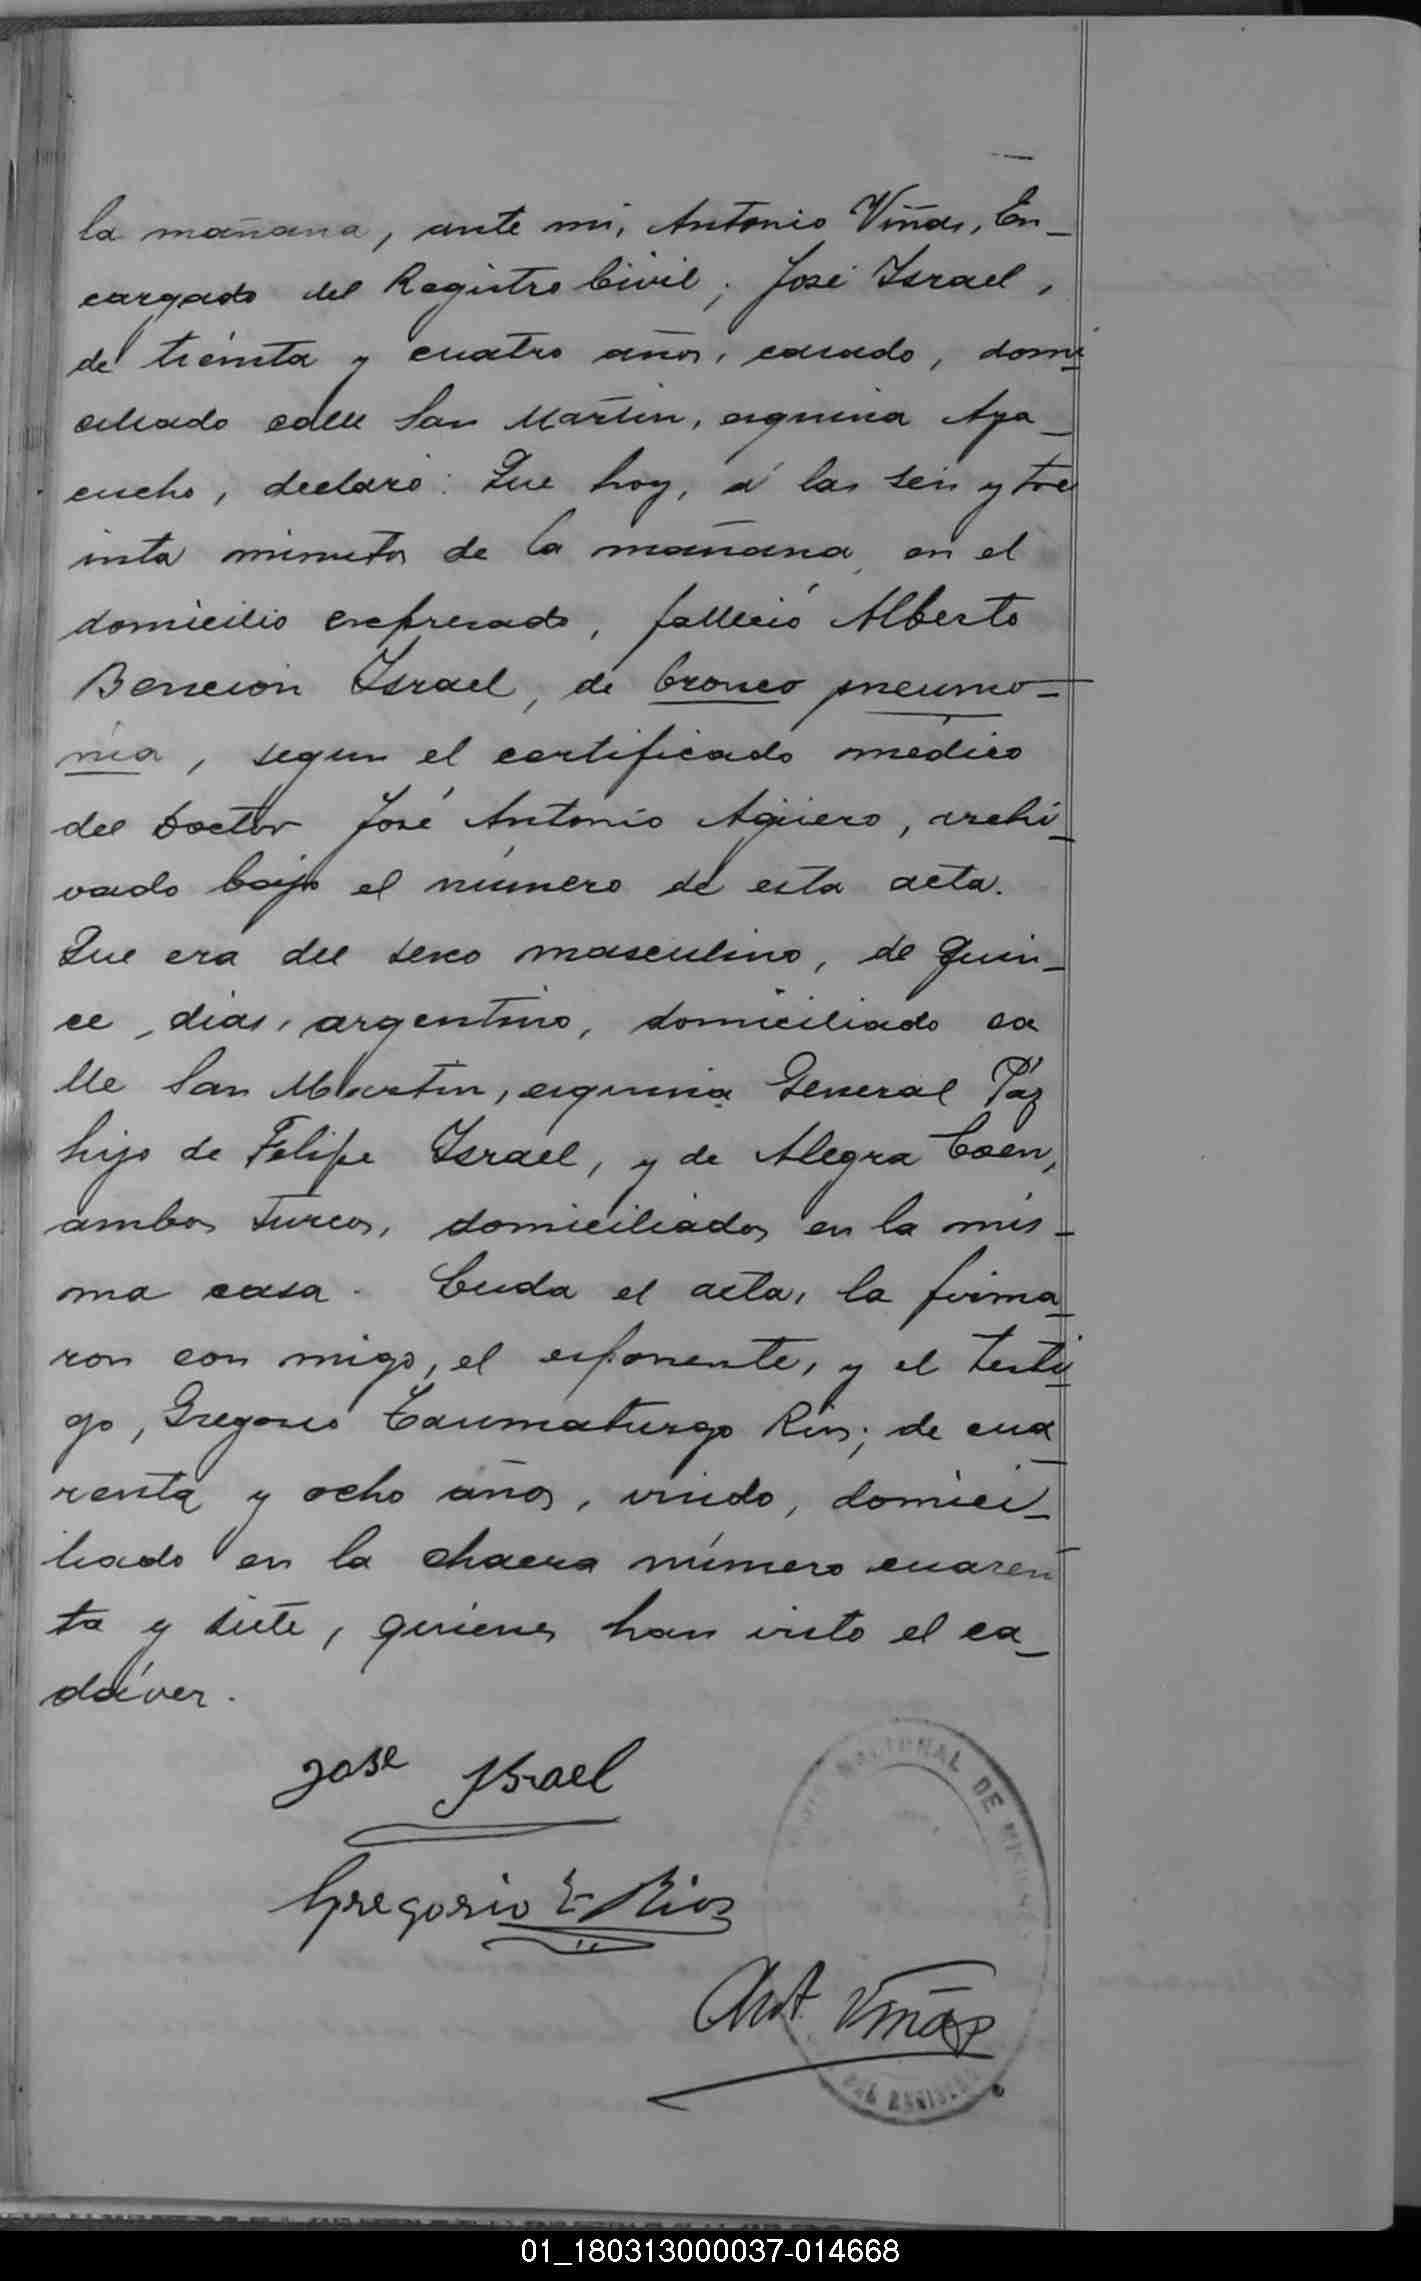 la mañana, ante mi, Antonio Viñas, En_
cargado del Registro Civil; José Israel,
de treinta y cuatro años, casado, domi_
ciliado calle San Martin, esquina Aya_
cucho, declaró: Que hoy, á las seis y tre
inta minutos de la mañana, en el
domicilio expresado, falleció Alberto
Bencion Israel, de bronco pneumo_
nia, segun el certificado médico
del Doctor José Antonio Agüero, archi_
vado bajo el número de esta acta.
Que era del sexo masculino, de quin_
ce dias, argentino, domiciliado ca
lle San Martin, esquina General Paz
hijo de Felipe Israel, y de Alegra Coen,
ambos turcos, domiciliados en la mis_
ma casa. Leida el acta, la firma_
ron con migo, el exponente, y el testi_
go, Gregorio Taumaturgo Rios; de cua_
renta y ocho años, viudo, domici_
liado en la chacra número cuaren_
ta y siete, quienes han visto el ca_
dáver.
Jose Israel
Gregorio T Rios
NACIONAL DE
Ant. Viñas